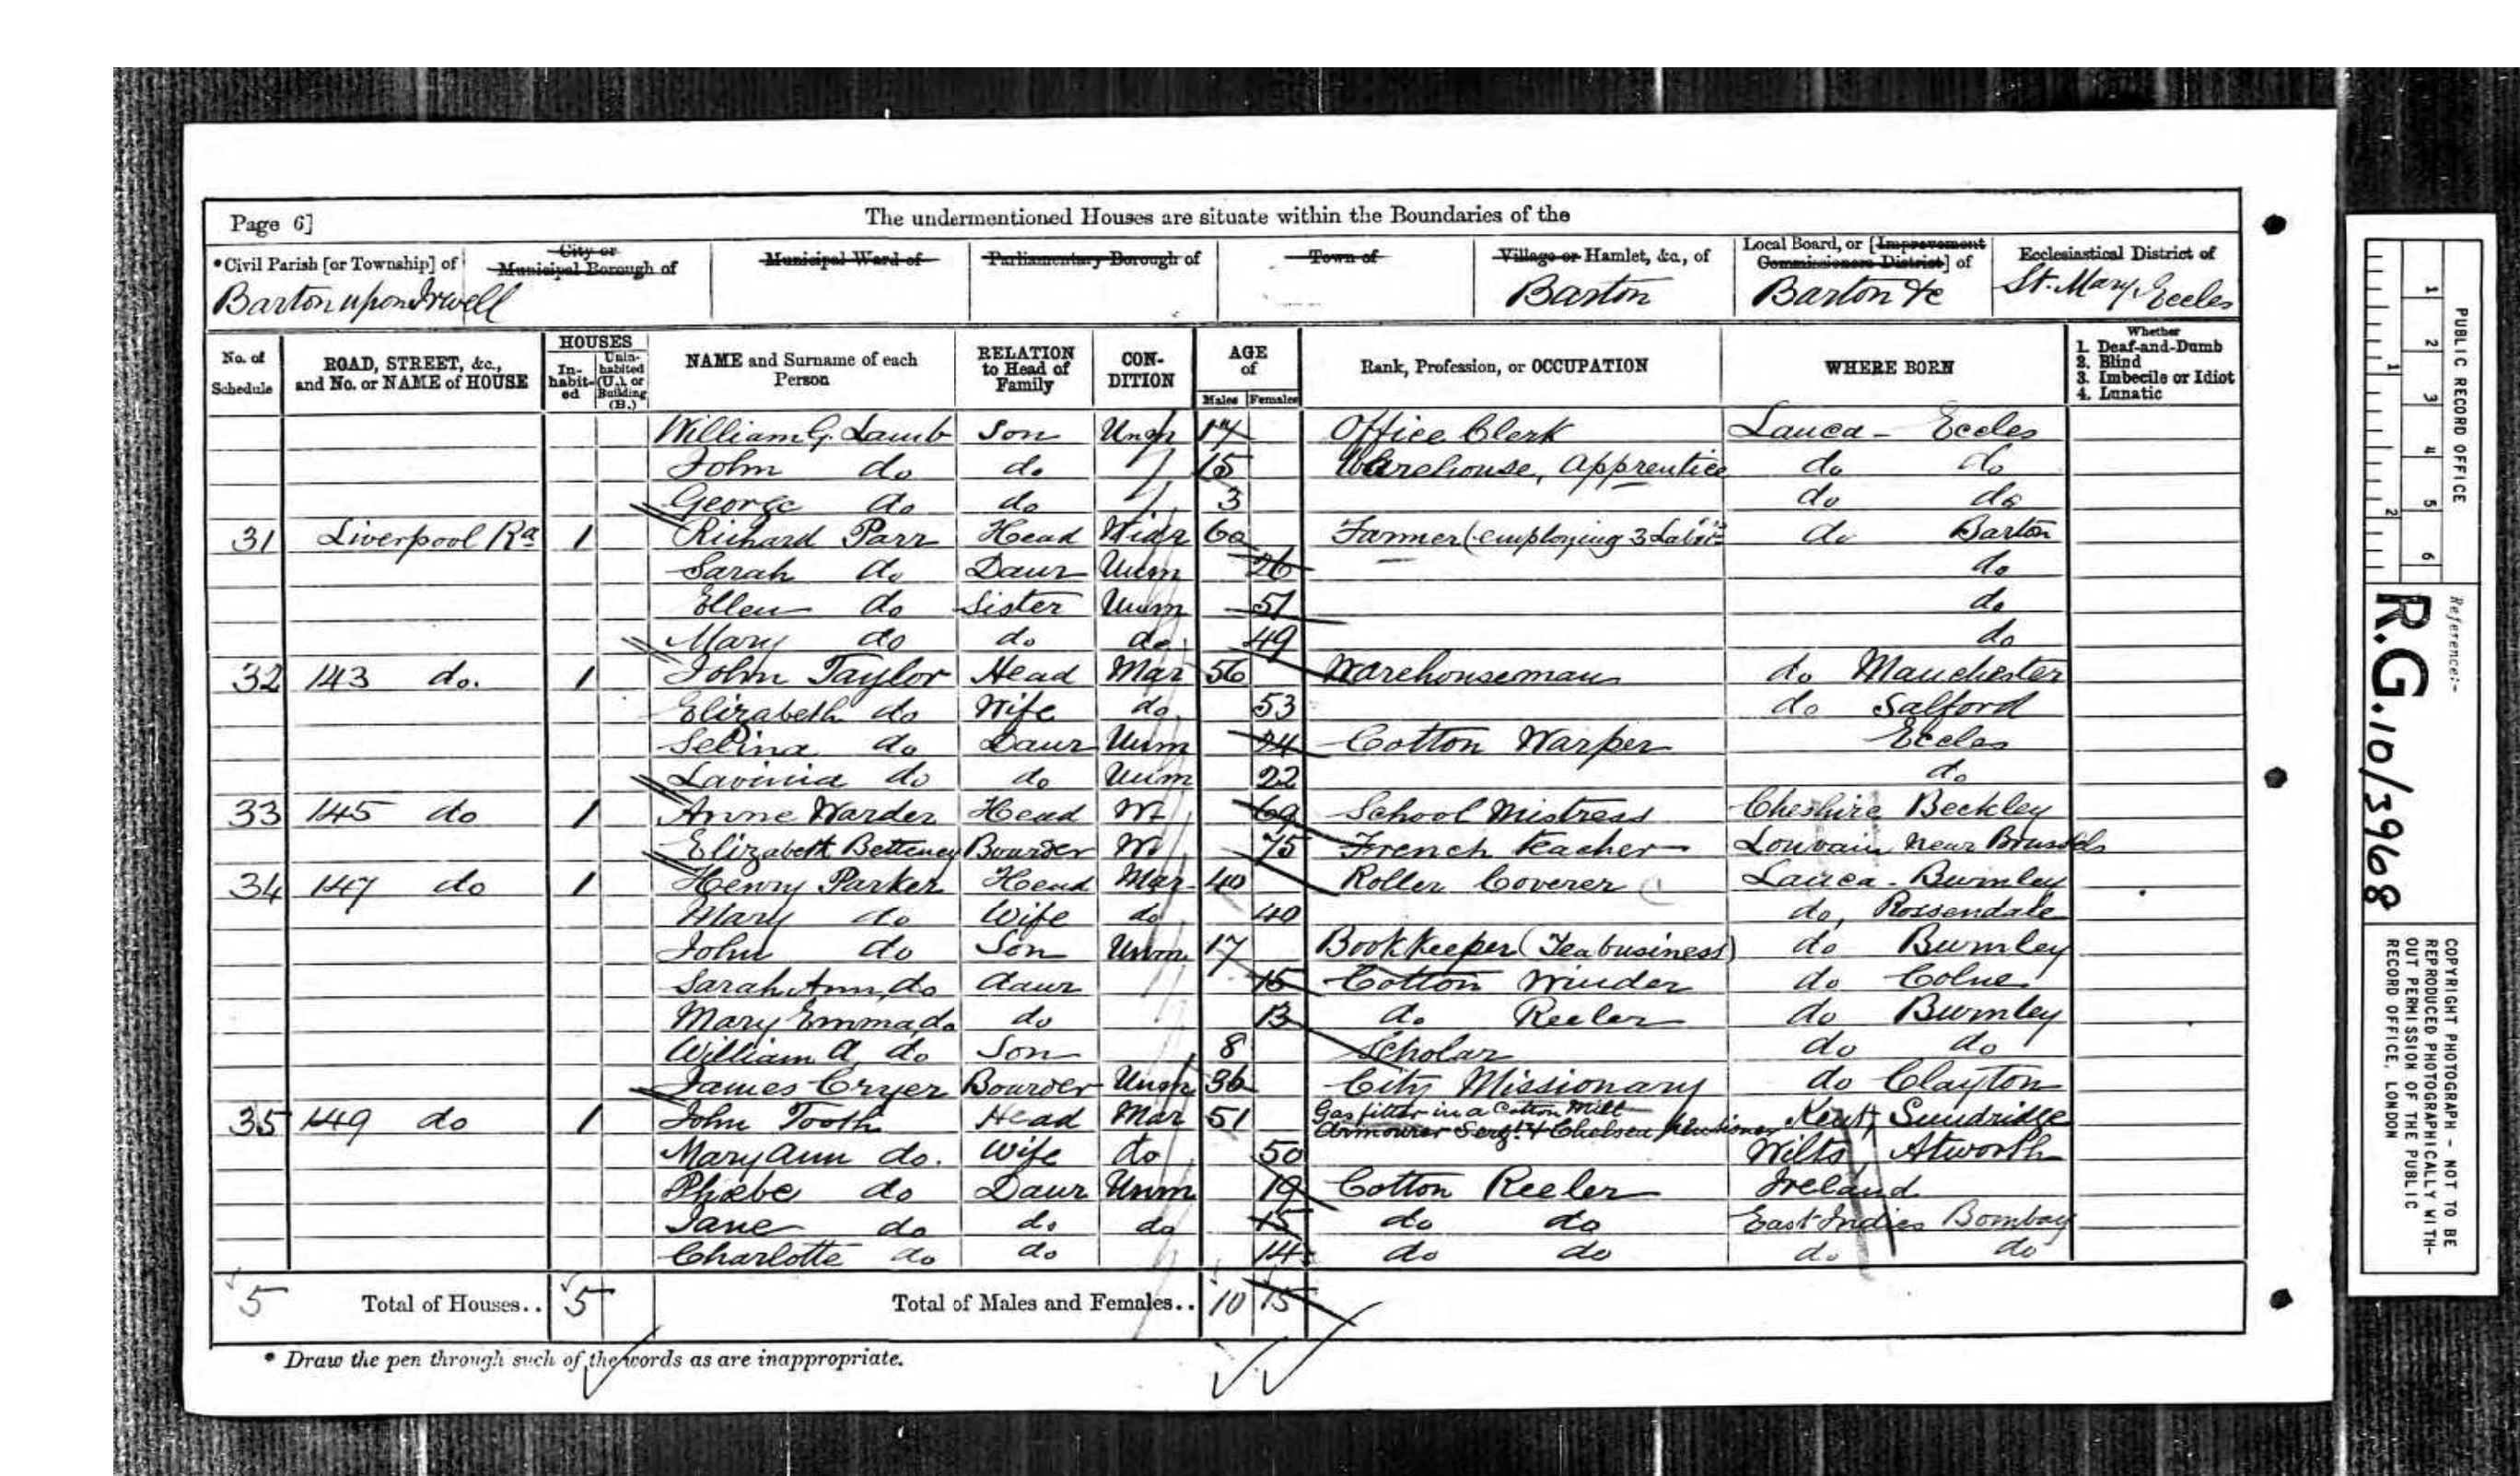 Page 6]
The undermentioned Houses are situate within the Boundaries of the
*Civil Parish [or Township] of
City or Municipal Borough of
Municipal Ward of
Parliamentary Borough of
Town of
Village or Hamlet, &c., of
Local Board, or [Improvement Commissioners District] of
Ecclesiastical District of
Barton upon Irwell Barton Barton &c St. Mary, Eccles
No. of Schedule
ROAD, STREET, &c., and No. or NAME of HOUSE
HOUSES
In-habit-ed
Unin-habited (U.), or Building (B.)
NAME and Surname of each Person
RELATION to Head of Family
CON-DITION
AGE of
Males Females
Rank, Profession, or OCCUPATION
WHERE BORN
Whether
1. Deaf-and-Dumb
2. Blind
3. Imbecile or Idiot
4. Lunatic
William G. Lamb Son Unm 17 Office Clerk Lanca - Eccles
John do do 15 Warehouse, Apprentice do do
George do do 3 do do
31 Liverpool Rd 1 Richard Parr Head Widr 60 Farmer (employing 3 Labrs do Barton
Sarah do Daur Unm 26 do
Ellen do Sister Unm 51 do
Mary do do do 49 do
32 143 do. 1 John Taylor Head Mar 56 Warehouseman do Manchester
Elizabeth do Wife do 53 do Salford
Selina do Daur Unm 24 Cotton Warper Eccles
Lavinia do do Unm 22 do
33 145 do 1 Anne Warder Head W 69 School Mistress Cheshire Beckley
Elizabeth Betteney Boarder W 75 French teacher Louvain near Brussels
34 147 do 1 Henry Parker Head Mar 40 Roller Coverer Lanca - Burnley
Mary do Wife do 40 do, Rossendale
John do Son Unm 17 Book Keeper (Tea business) do Burnley
Sarah Ann, do daur 15 Cotton Winder do Colne
Mary Emma, do do 13 do Reeler do Burnley
William A, do Son 8 Scholar do do
James Cryer Boarder Unm 36 City Missionary do Clayton
35 149 do 1 John Tooth Head Mar 51 Gas fitter in a Cotton Mill
Armourer Sergt. & Chelsea Pensioner Kent, Sundridge
Mary Ann do. Wife do 50 Wilts Atworth
Phœbe do Daur Unm 19 Cotton Reeler Ireland
Jane do do do 15 do do East Indies Bombay
Charlotte do do 14 do do do do
5 Total of Houses.. 5 Total of Males and Females.. 10 15
* Draw the pen through such of the words as are inappropriate.
1 2 3 4 5 6
1 2
PUBLIC RECORD OFFICE
Reference:-
R.G.10/3968
COPYRIGHT PHOTOGRAPH - NOT TO BE
REPRODUCED PHOTOGRAPHICALLY WITH-
OUT PERMISSION OF THE PUBLIC
RECORD OFFICE, LONDON